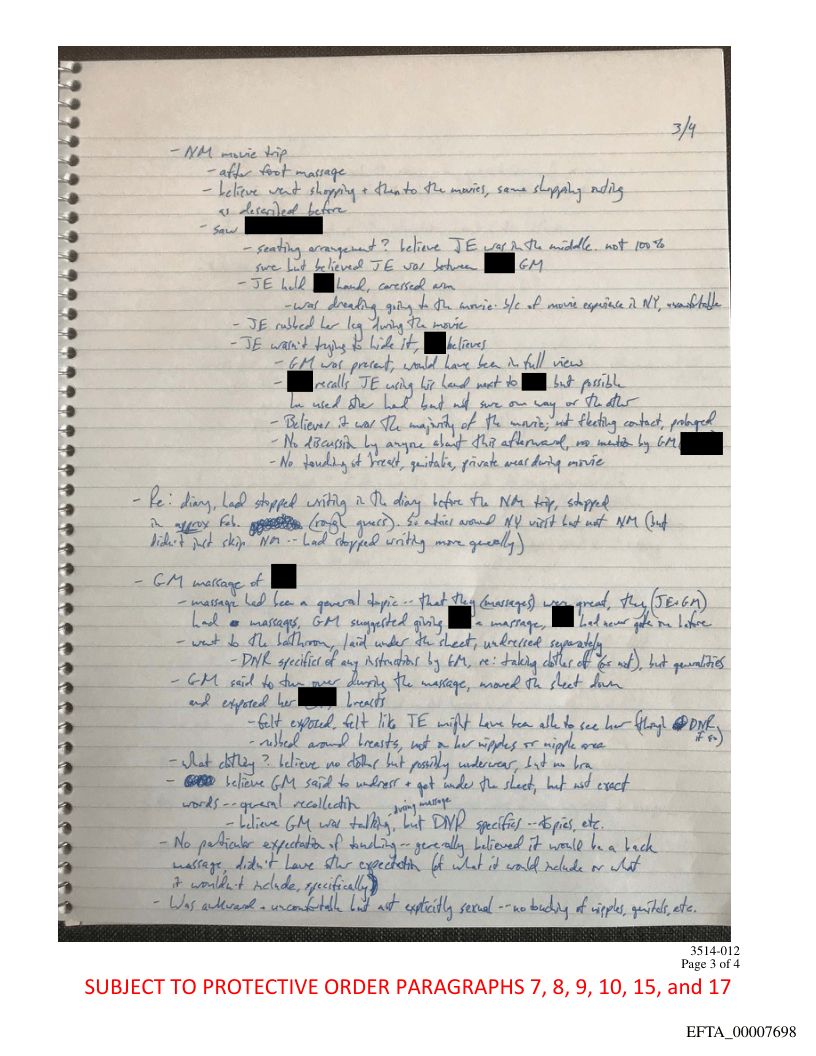 3/4
- NM movie trip
- after foot massage
- believe went shopping + then to the movies, same shopping outing
as described before
- saw
- seating arrangement? believe JE was in the middle. not 100%
sure but believed JE was between GM
- JE held hand, caressed arm
- was dreading going to the movie b/c of movie experience in NY, uncomfortable
- JE rubbed her leg during the movie
- JE wasn't trying to hide it, believes
- GM was present, would have been in full view
- recalls JE using his hand next to but possible
he used other hand but not sure one way or the other
- Believes it was the majority of the movie; not fleeting contact, prolonged
- No discussion by anyone about this afterward, no mention by GM
- No touching of breast, genitalia, private areas during movie
- Re: diary, had stopped writing in the diary before the NM trip, stopped
in approx Feb. (rough guess). So entries around NY visit but not NM (but
didn't just skip NM -- had stopped writing more generally)
- GM massage of
- massage had been a general topic -- that they (massages) were great, they (JE+GM)
had massages, GM suggested giving a massage, had never gotten one before
- went to the bathroom, laid under the sheet, undressed separately
- DNR specifics of any instructions by GM, re: taking clothes off (or not), but generalities
- GM said to turn over during the massage, moved the sheet down
and exposed her breasts
- felt exposed, felt like JE might have been able to see her though DNR
if so)
- rubbed around breasts, not on her nipples or nipple area
- what clothing? believe no clothes but possibly underwear, but no bra
- believe GM said to undress + get under the sheet, but not exact
words -- general recollection
- believe GM was talking during massage, but DNR specifics -- topics, etc.
- No particular expectation of touching -- generally believed it would be a back
massage, didn't have other expectation (of what it would include or what
it wouldn't include, specifically)
- Was awkward + uncomfortable but not explicitly sexual -- no touching of nipples, genitals, etc.
3514-012
Page 3 of 4
SUBJECT TO PROTECTIVE ORDER PARAGRAPHS 7, 8, 9, 10, 15, and 17
EFTA_00007698